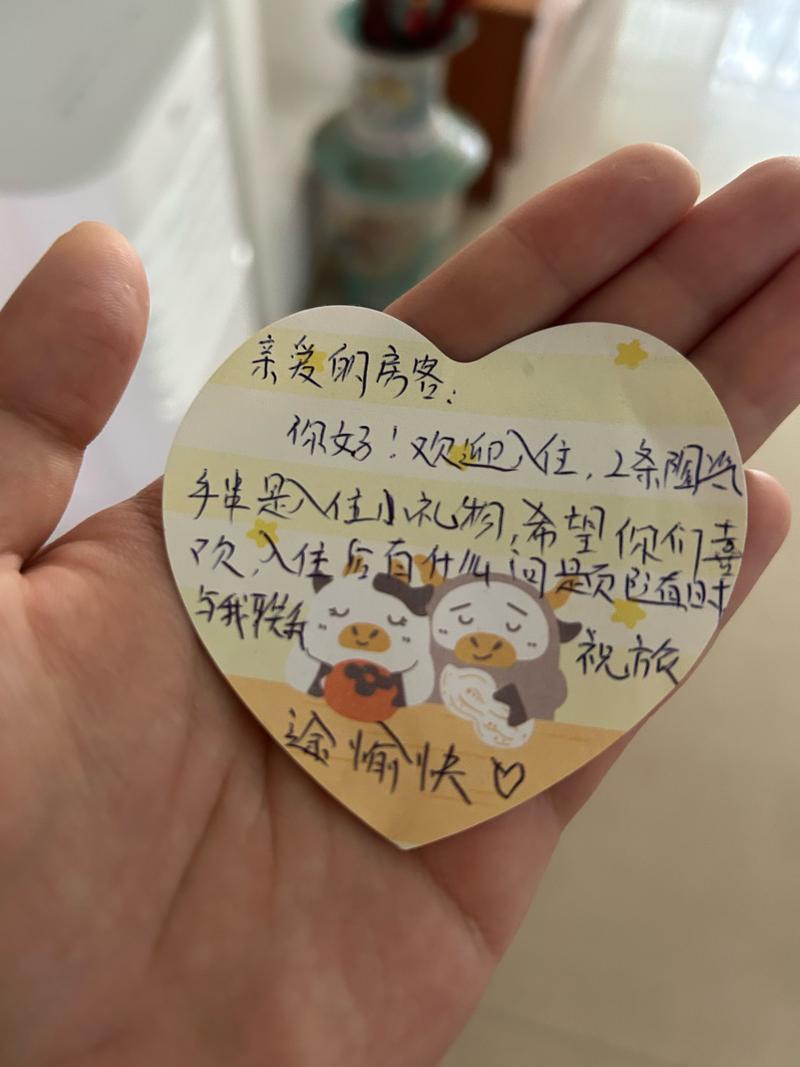 亲爱的房客：
你好！欢迎入住，2条
手串是入住小礼物，希望你们喜
欢，入住后有什么问题可随时
与我联系 祝旅
途愉快♡